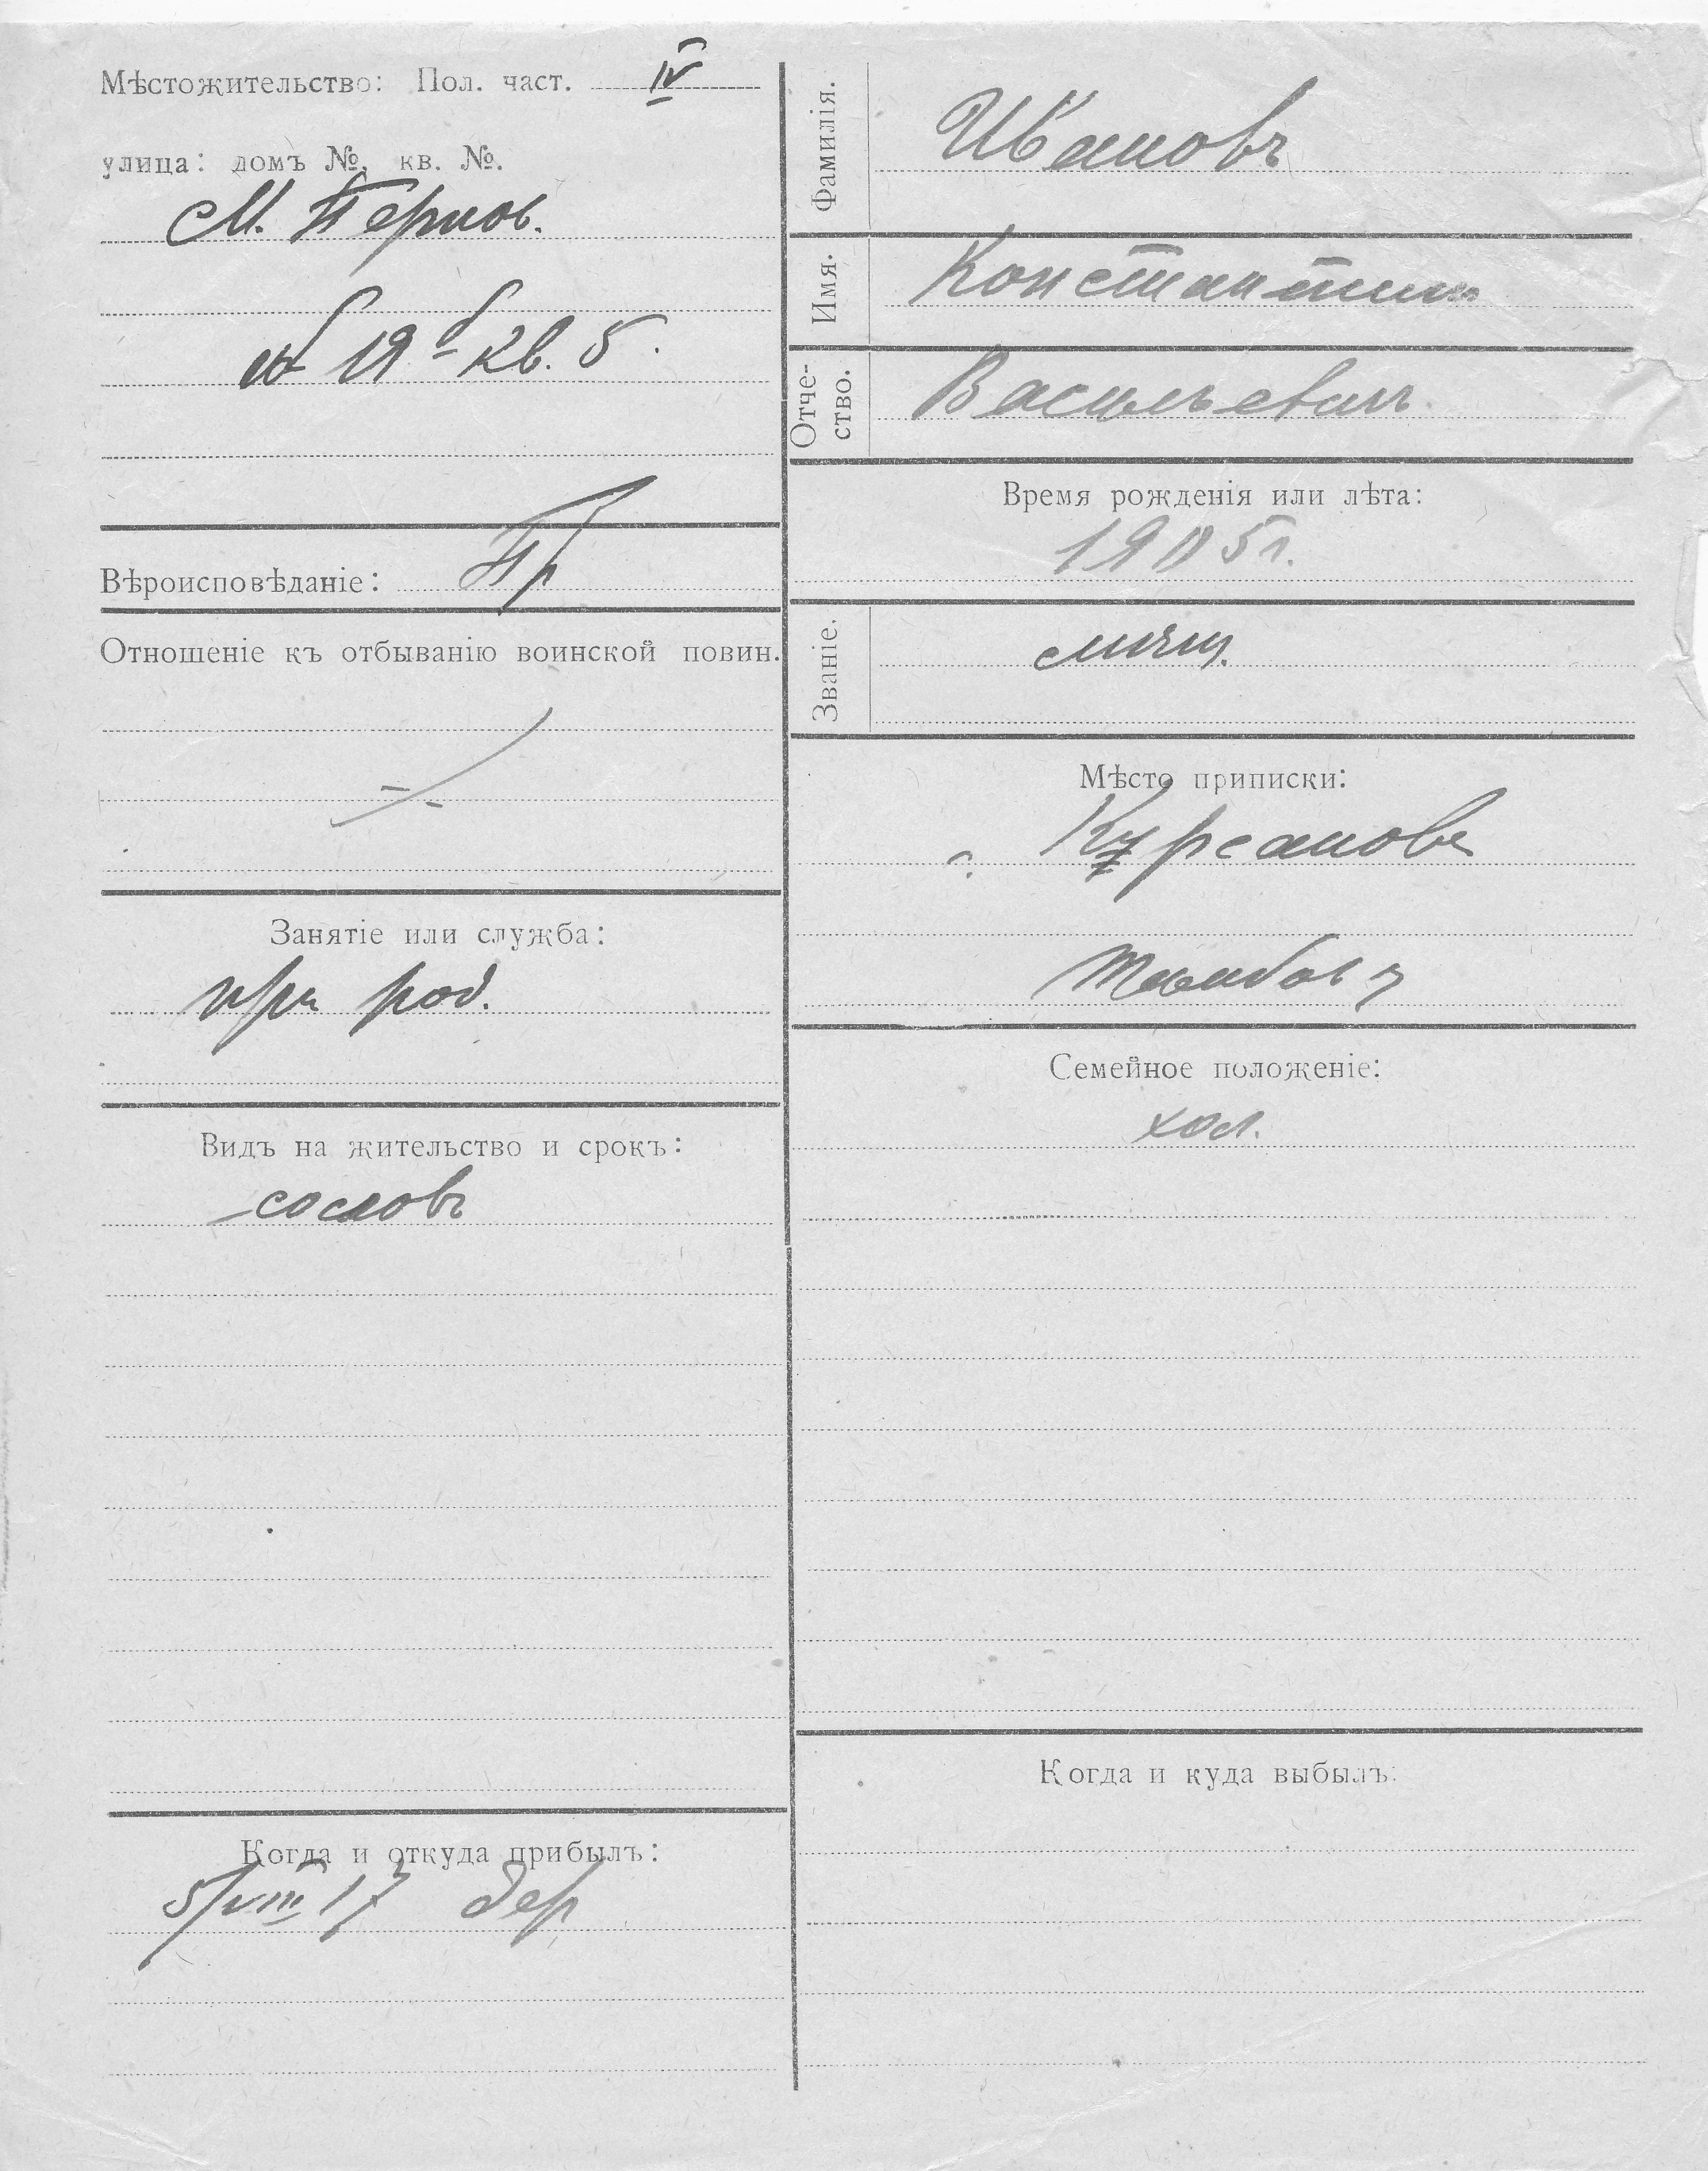 Мѣстожительство: Пол. част. IV
улица: домъ №, кв. №.
М. Пернов.
д 19 б кв. 5.
Вѣроисповѣданіе: Пр
Отношеніе къ отбыванію воинской повин.
Занятіе или служба:
при род.
Видъ на жительство и срокъ:
сослов
Когда и откуда прибылъ:
5/VIII 17 дер
Фамилія. Ивановъ
Имя. Константинъ
Отче-
ство. Васильевичъ
Время рожденія или лѣта:
1905 г.
Званіе. мѣщ.
Мѣсто приписки:
г. Кирсановъ
Тамбов г
Семейное положеніе:
хол.
Когда и куда выбылъ: